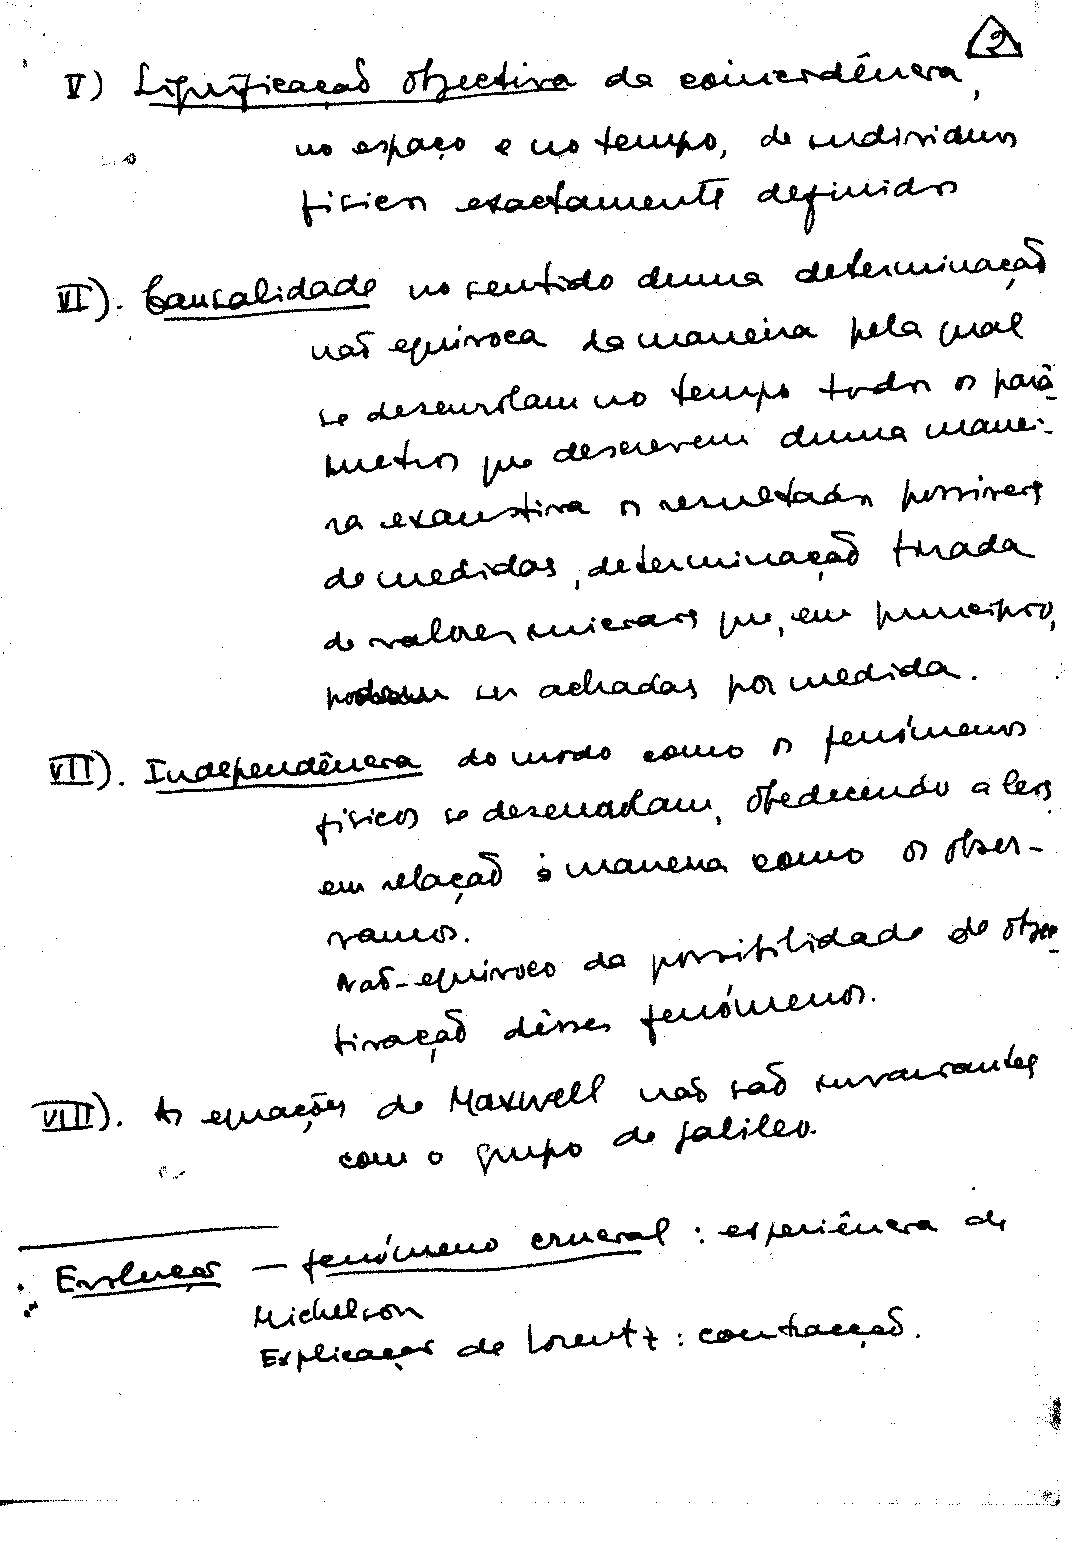 2
V) Significação objectiva da coincidência,
no espaço e no tempo, de individuos
fisicos exactamente definidos
VI). Causalidade no sentido duma determinação
não equivoca da maneira pela qual
se desenrolam no tempo todos os parâ-
metros que descrevem duma manei-
ra exaustiva os resultados possiveis
de medidas, determinação tirada
de valores iniciais que, em principio,
podem ser achadas por medida.
VII). Independência do modo como os fenómenos
fisicos se desenrolam, obedecendo a leis
em relação à maneira como os obser-
vamos.
Não-equivoco da possibilidade de objec-
tivação dêsses fenómenos.
VIII). As equações de Maxwell não são invariantes
com o grupo de Galileo.
Evolução — fenómeno crucial : experiência de
Michelson
Explicação de Lorentz : contracção.